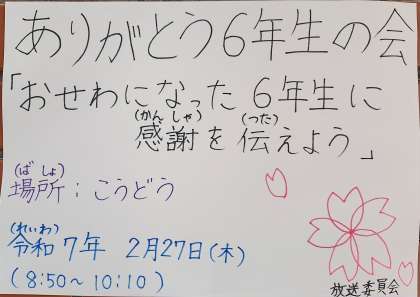 ありがとう6年生の会
「おせわになった 6年生に
(かんしゃ) (つた)
感謝を 伝えよう」
(ばしょ)
場所：こうどう
(れいわ)
令和7年 2月27日(木)
(8:50〜10:10)
放送委員会